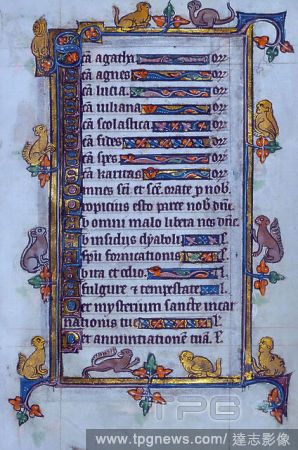 Scā agatha or
Scā agnes or
Scā lucia or
Scā iuliana or
Scā scolastica or
Scā fides or
Scā spes or
Scā karitas or
Omnes scī et scē orate p nob
Propicius esto parce nob dn̄e
Ab omni malo libera nos dn̄e
Ab insidiis dyaboli l
A spū fornicationis l
Ab ira et odio l
A fulgure & tempestate l
Per mysterium sancte incar
nationis tue l
Per annunciationē tuā l
TPG
www.tpgnews.com / 達志影像